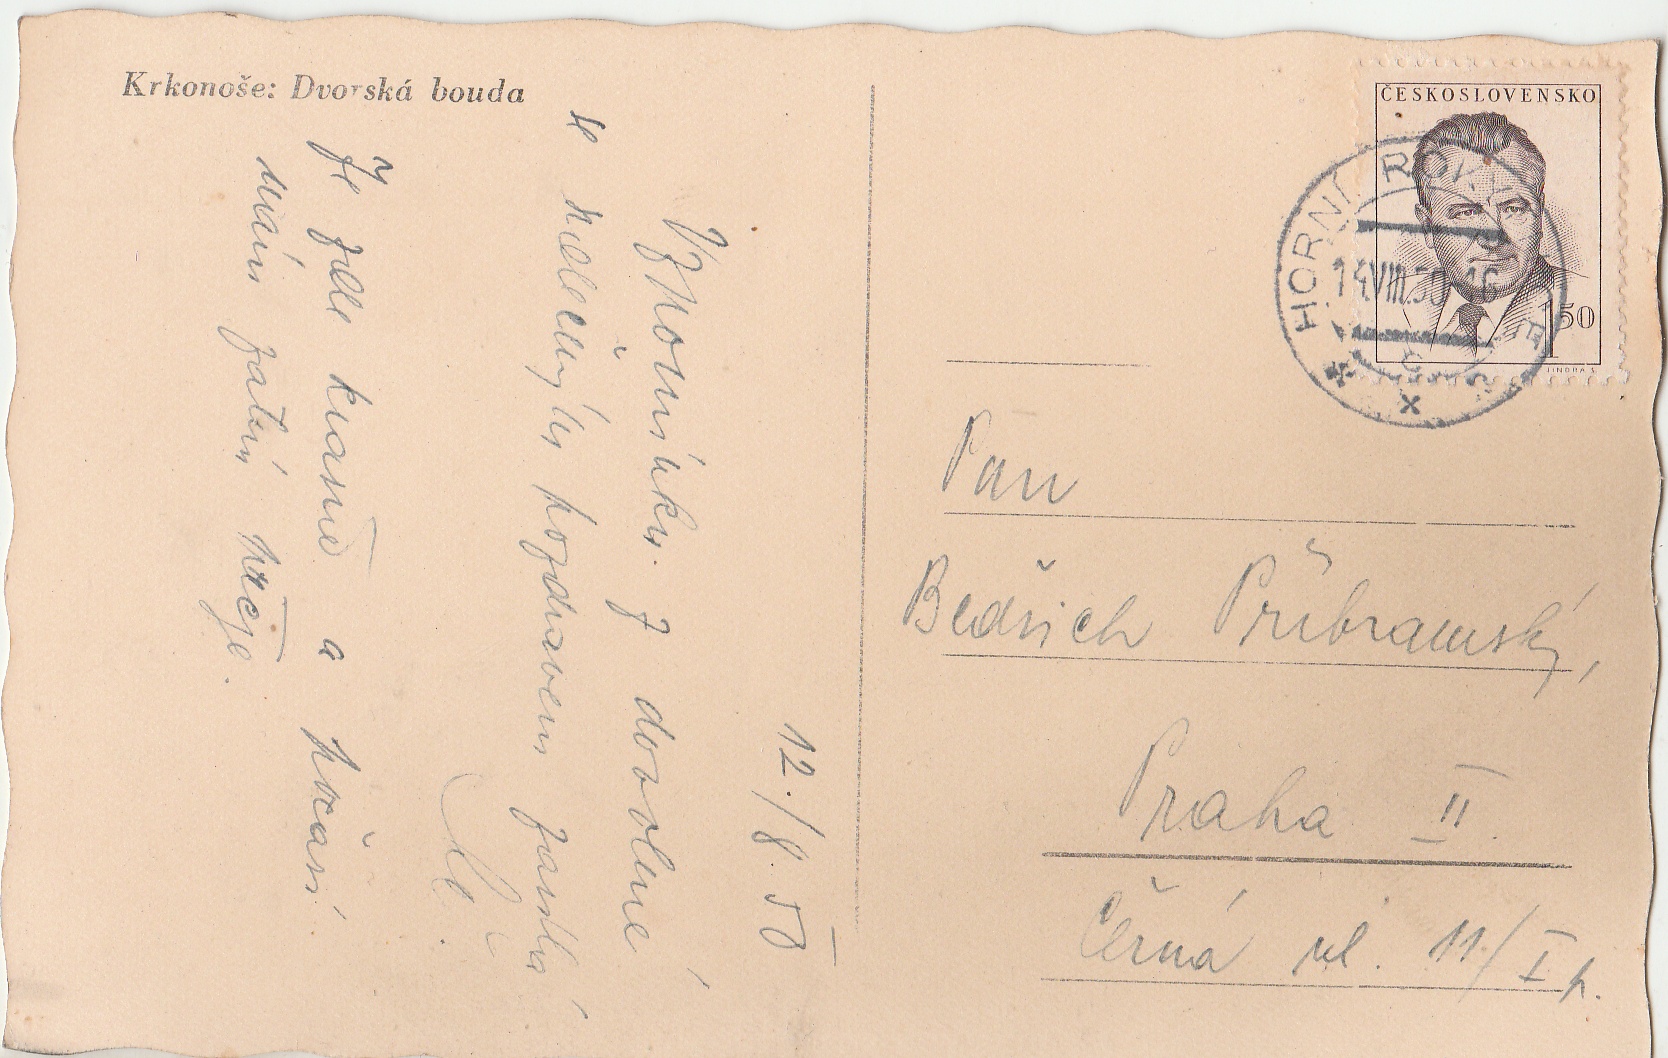 Krkonoše: Dvorská bouda
12./8. 50
Vzpomínku z dovolené
se srdečným pozdravem zasílá
M.
Je zde krásně a počasí
mám zatím přeje.
ČESKOSLOVENSKO
1,50
JINDRA S.
HORNÍ ROK
14.VIII.50-16
Pan
Bedřich Příbramský,
Praha II.
Černá ul. 11/I p.